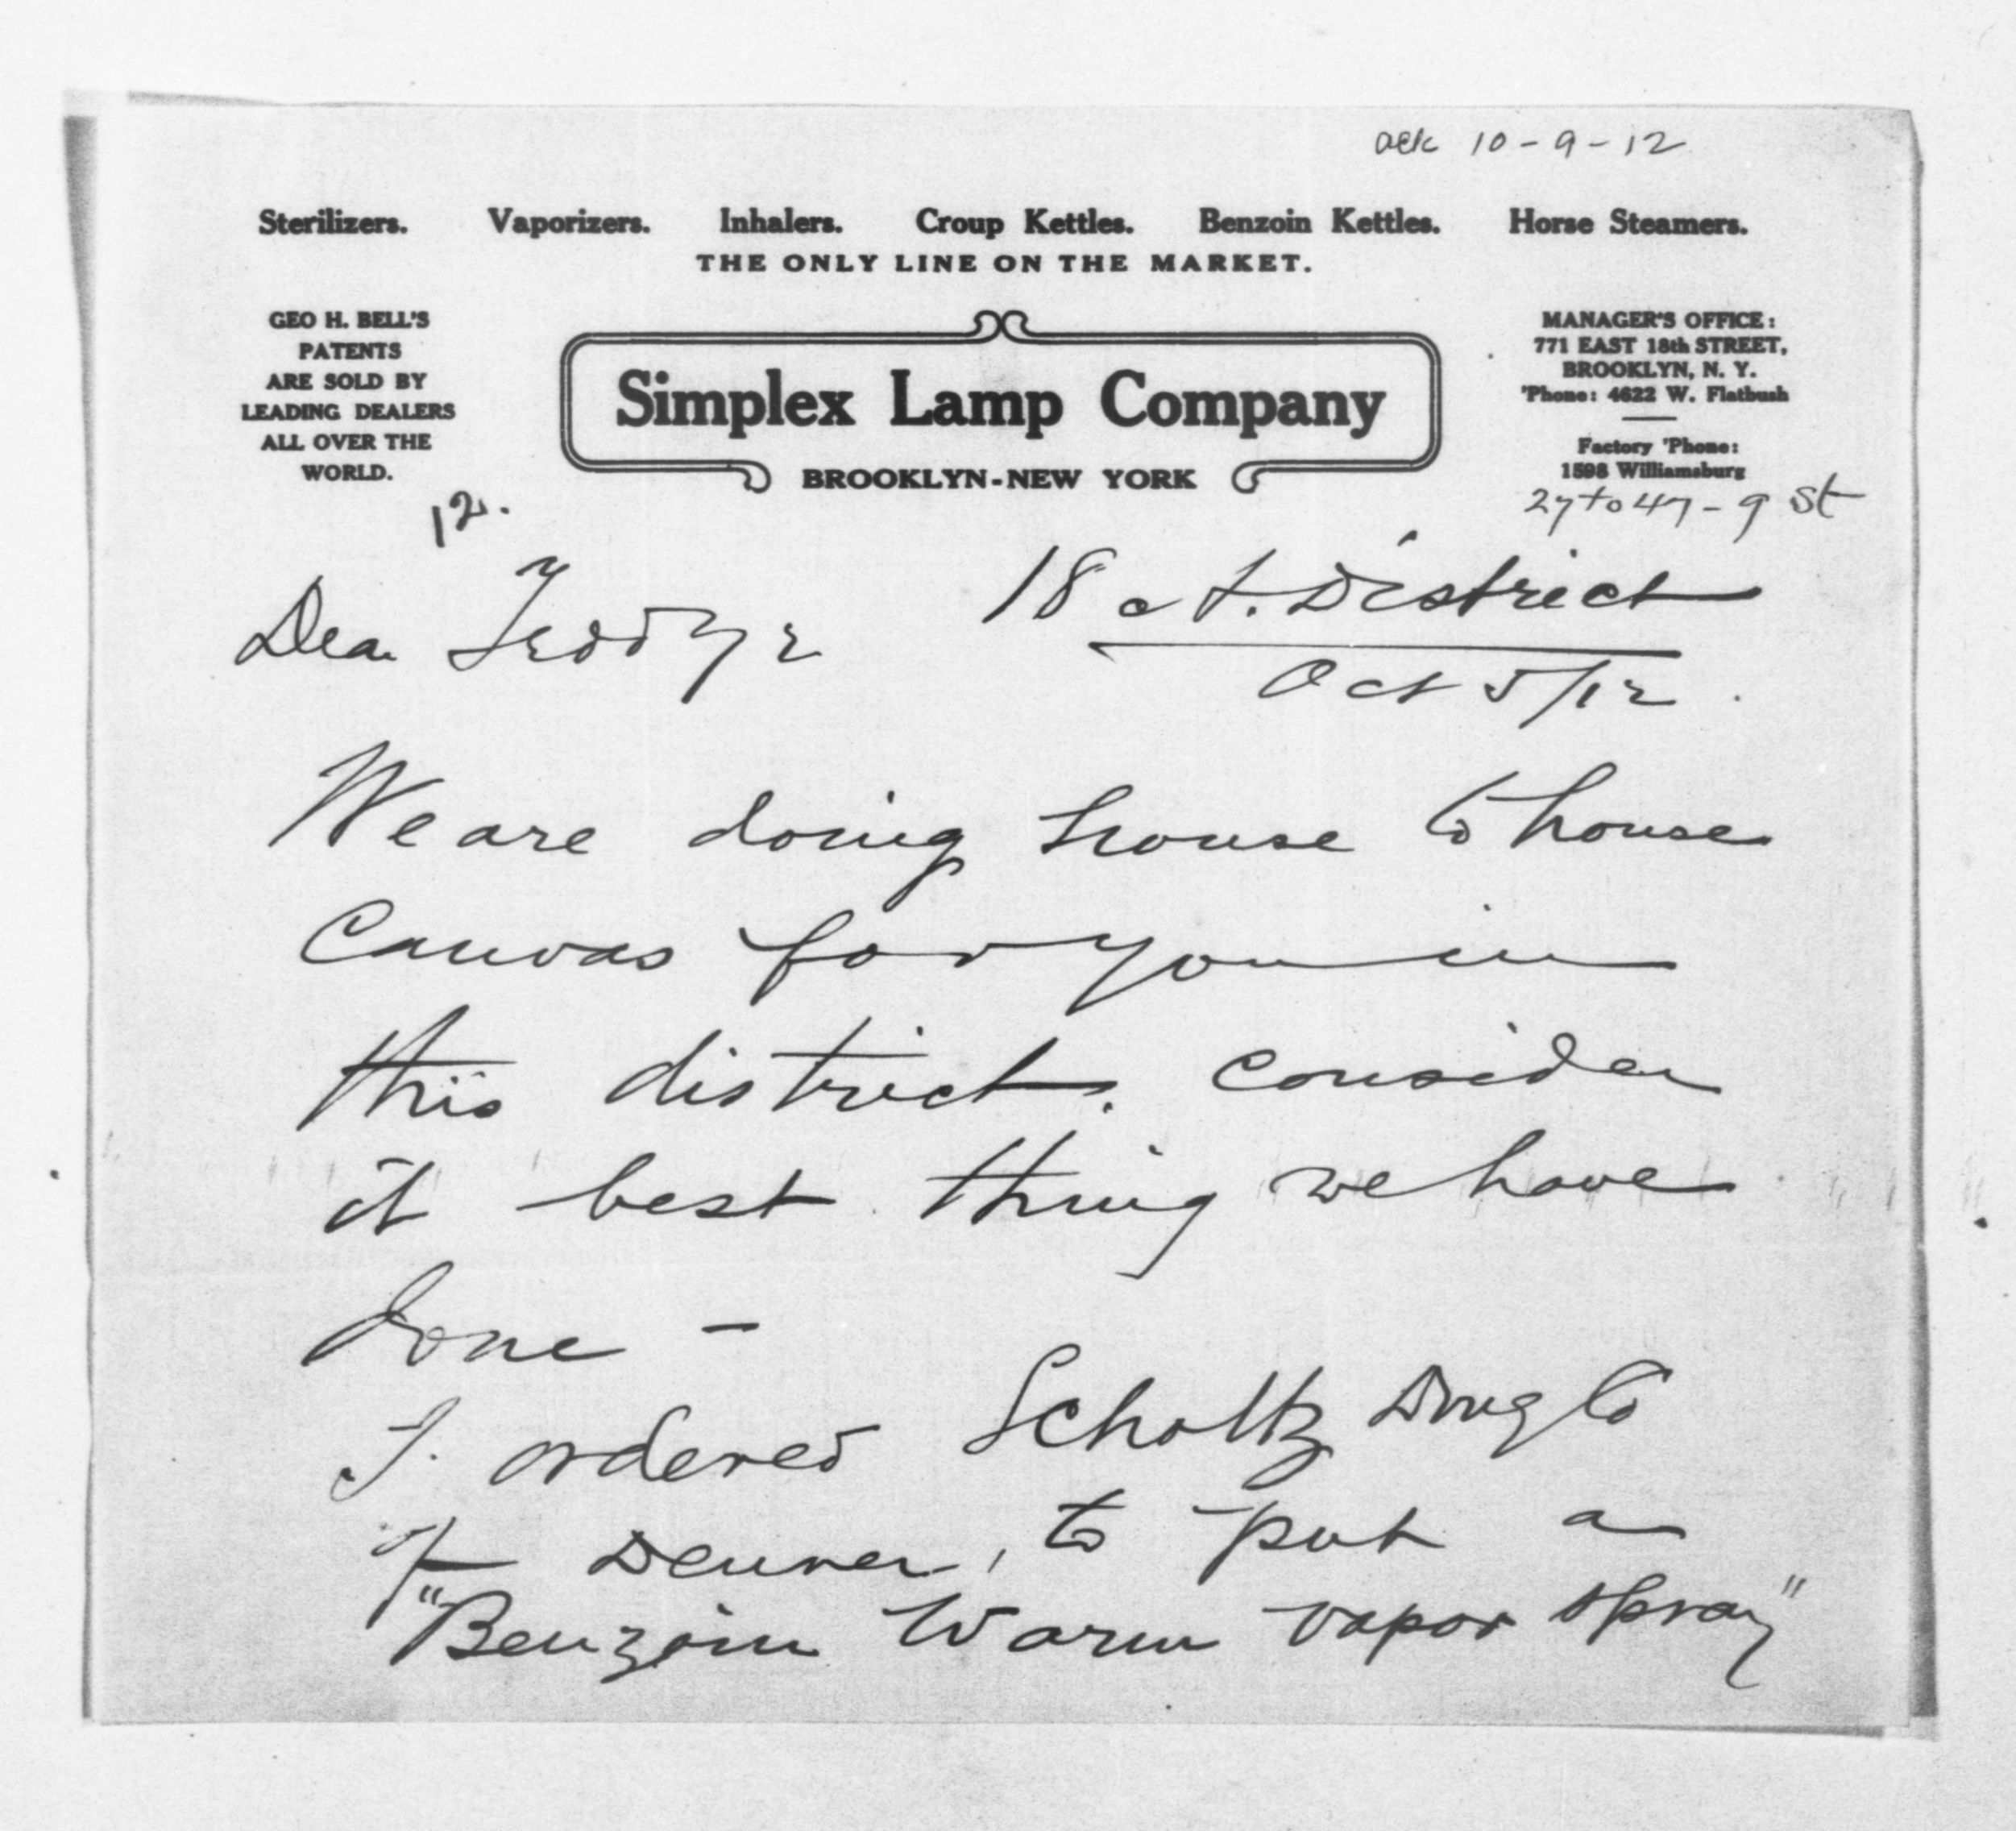 ack 10-9-12
Sterilizers. Vaporizers. Inhalers. Croup Kettles. Benzoin Kettles. Horse Steamers.
THE ONLY LINE ON THE MARKET.
GEO H. BELL'S
PATENTS
ARE SOLD BY
LEADING DEALERS
ALL OVER THE
WORLD.
Simplex Lamp Company
BROOKLYN-NEW YORK
MANAGER'S OFFICE:
771 EAST 18th STREET,
BROOKLYN, N. Y.
'Phone: 4622 W. Flatbush
Factory 'Phone:
1598 Williamsburg
27 to 47 - 9 St
12.
18 District
Dear Teddy
Oct 5/12.
We are doing house to house
Canvas for you in
this district. consider
it best thing we have
done -
I. ordered Scholtz Drug Co
of Denver, to put a
"Benzoin Warm vapor spray"